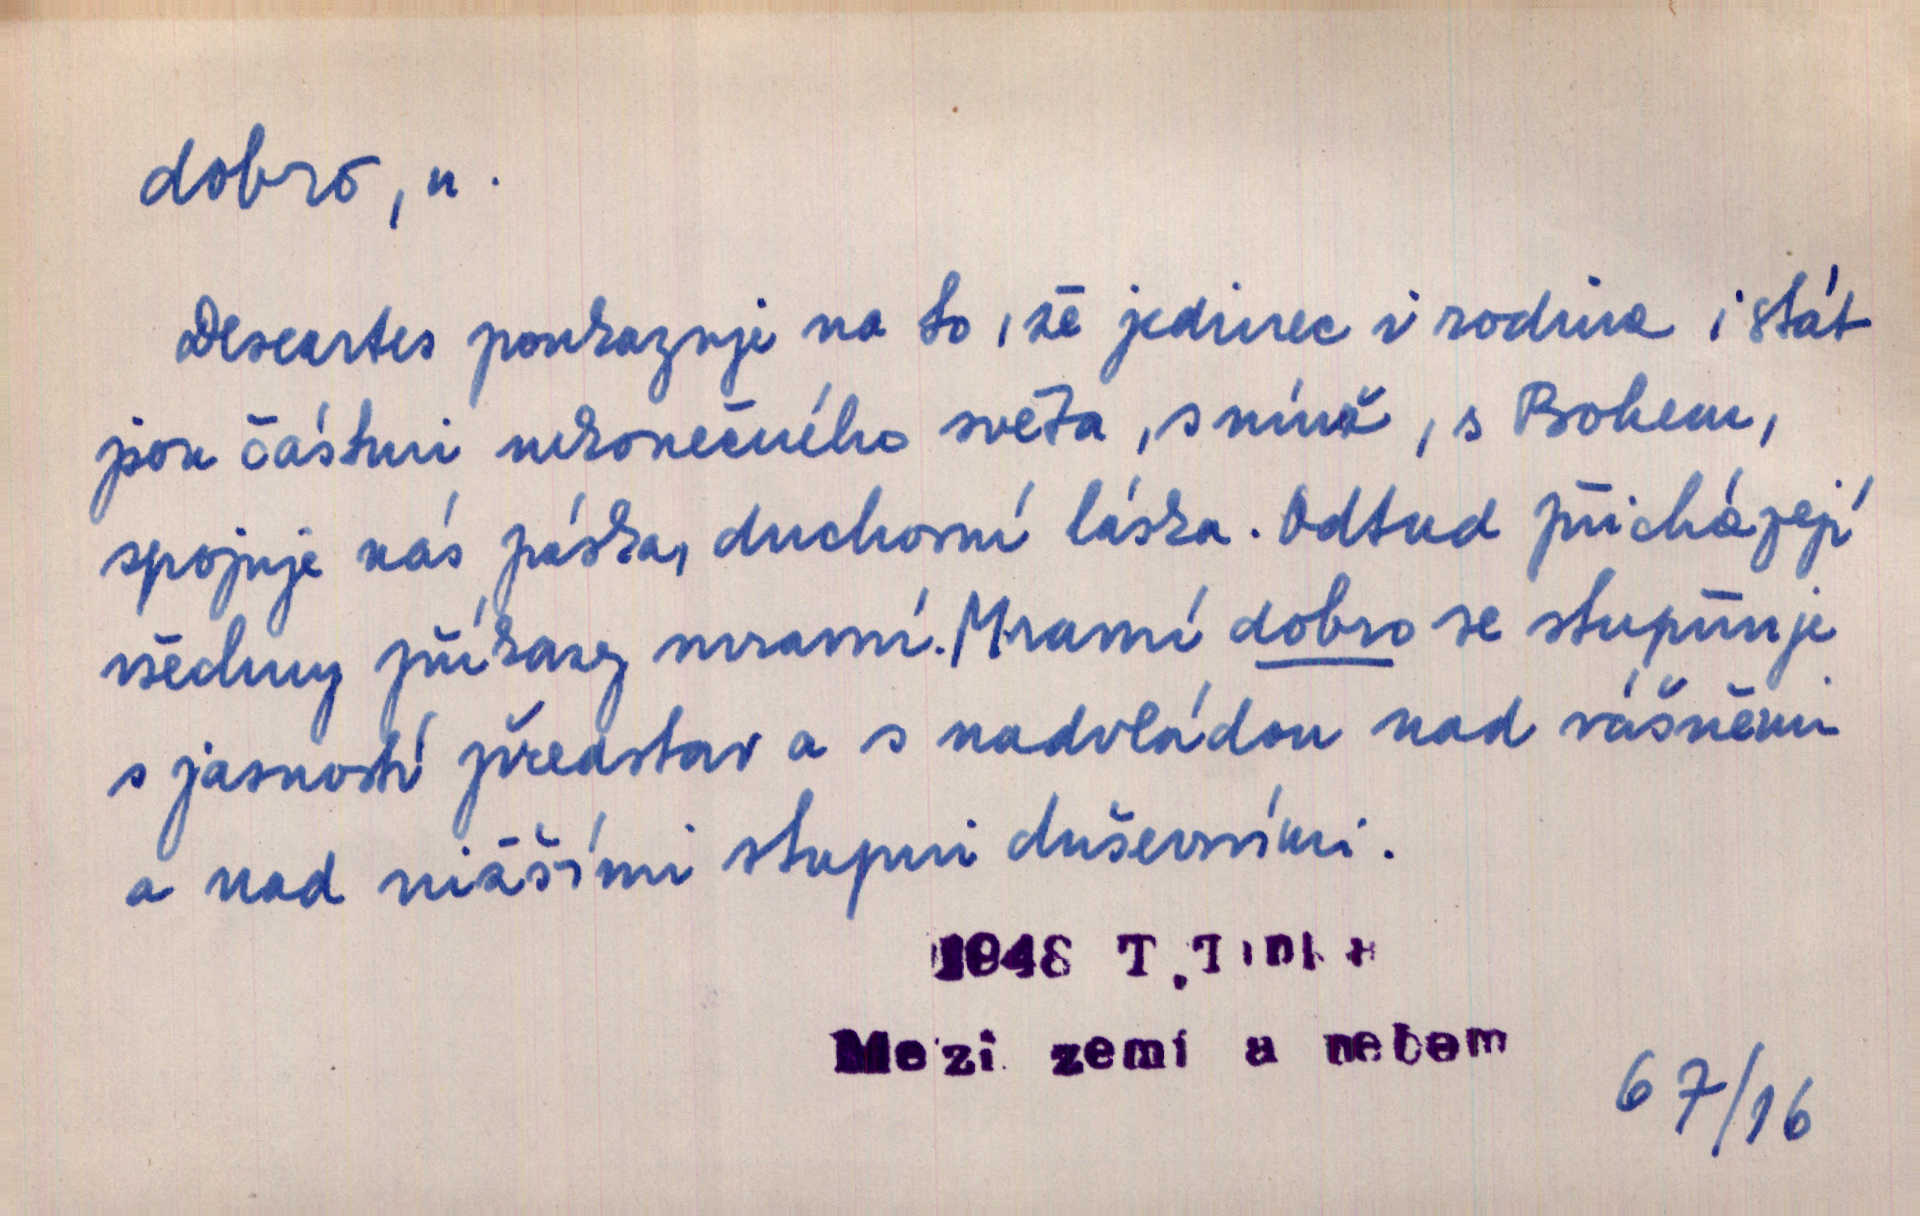 dobro, n.
Descartes poukazuje na to, že jedinec i rodina i stát
jsou částmi nekonečného světa, s nímž, s Bohem,
spojuje nás páska, duchovní láska. Odtud přicházejí
všechny příkazy mravní. Mravní dobro se stupňuje
s jasností představ a s nadvládou nad vášněmi
a nad nižšími stupni duševními.
1948 T.
Mezi zemí a nebem
67/16